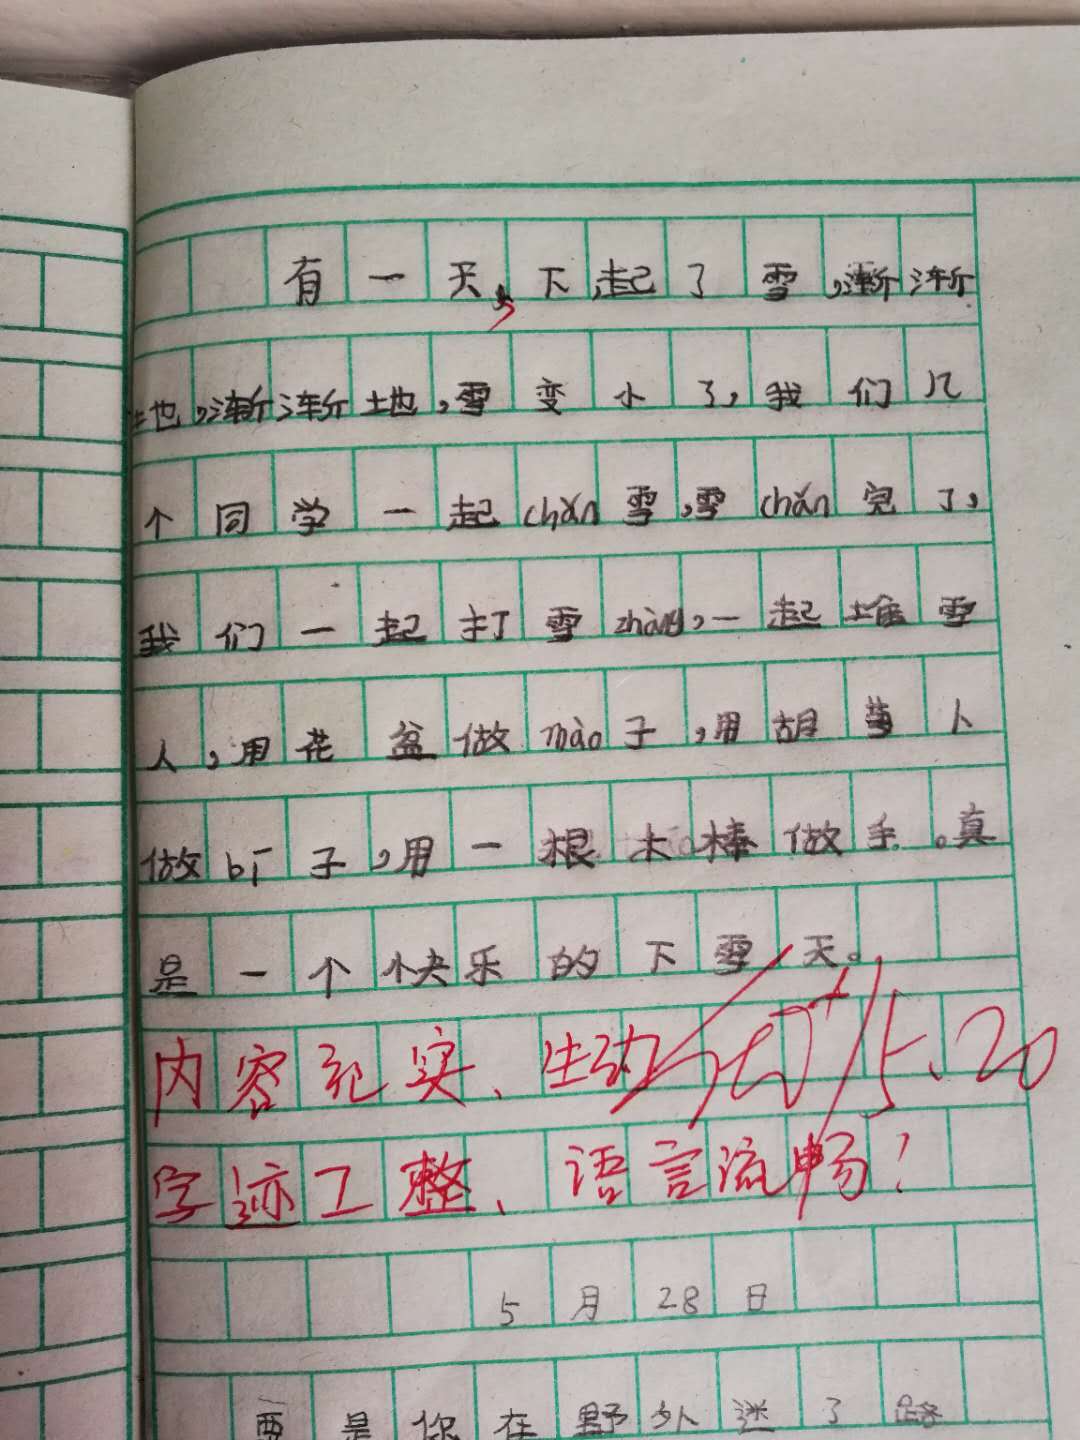 有一天,下起了雪,渐渐
地,渐渐地,雪变小了,我们几
个同学一起chǎn雪,雪chǎn完了,
我们一起打雪zhàng,一起堆雪
人,用花盆做mào子,用胡萝卜
做bí子,用一根木棒做手。真
是一个快乐的下雪天。
内容充实、生动 5.20
字迹工整、语言流畅!
5月28日
要是你在野外迷了路